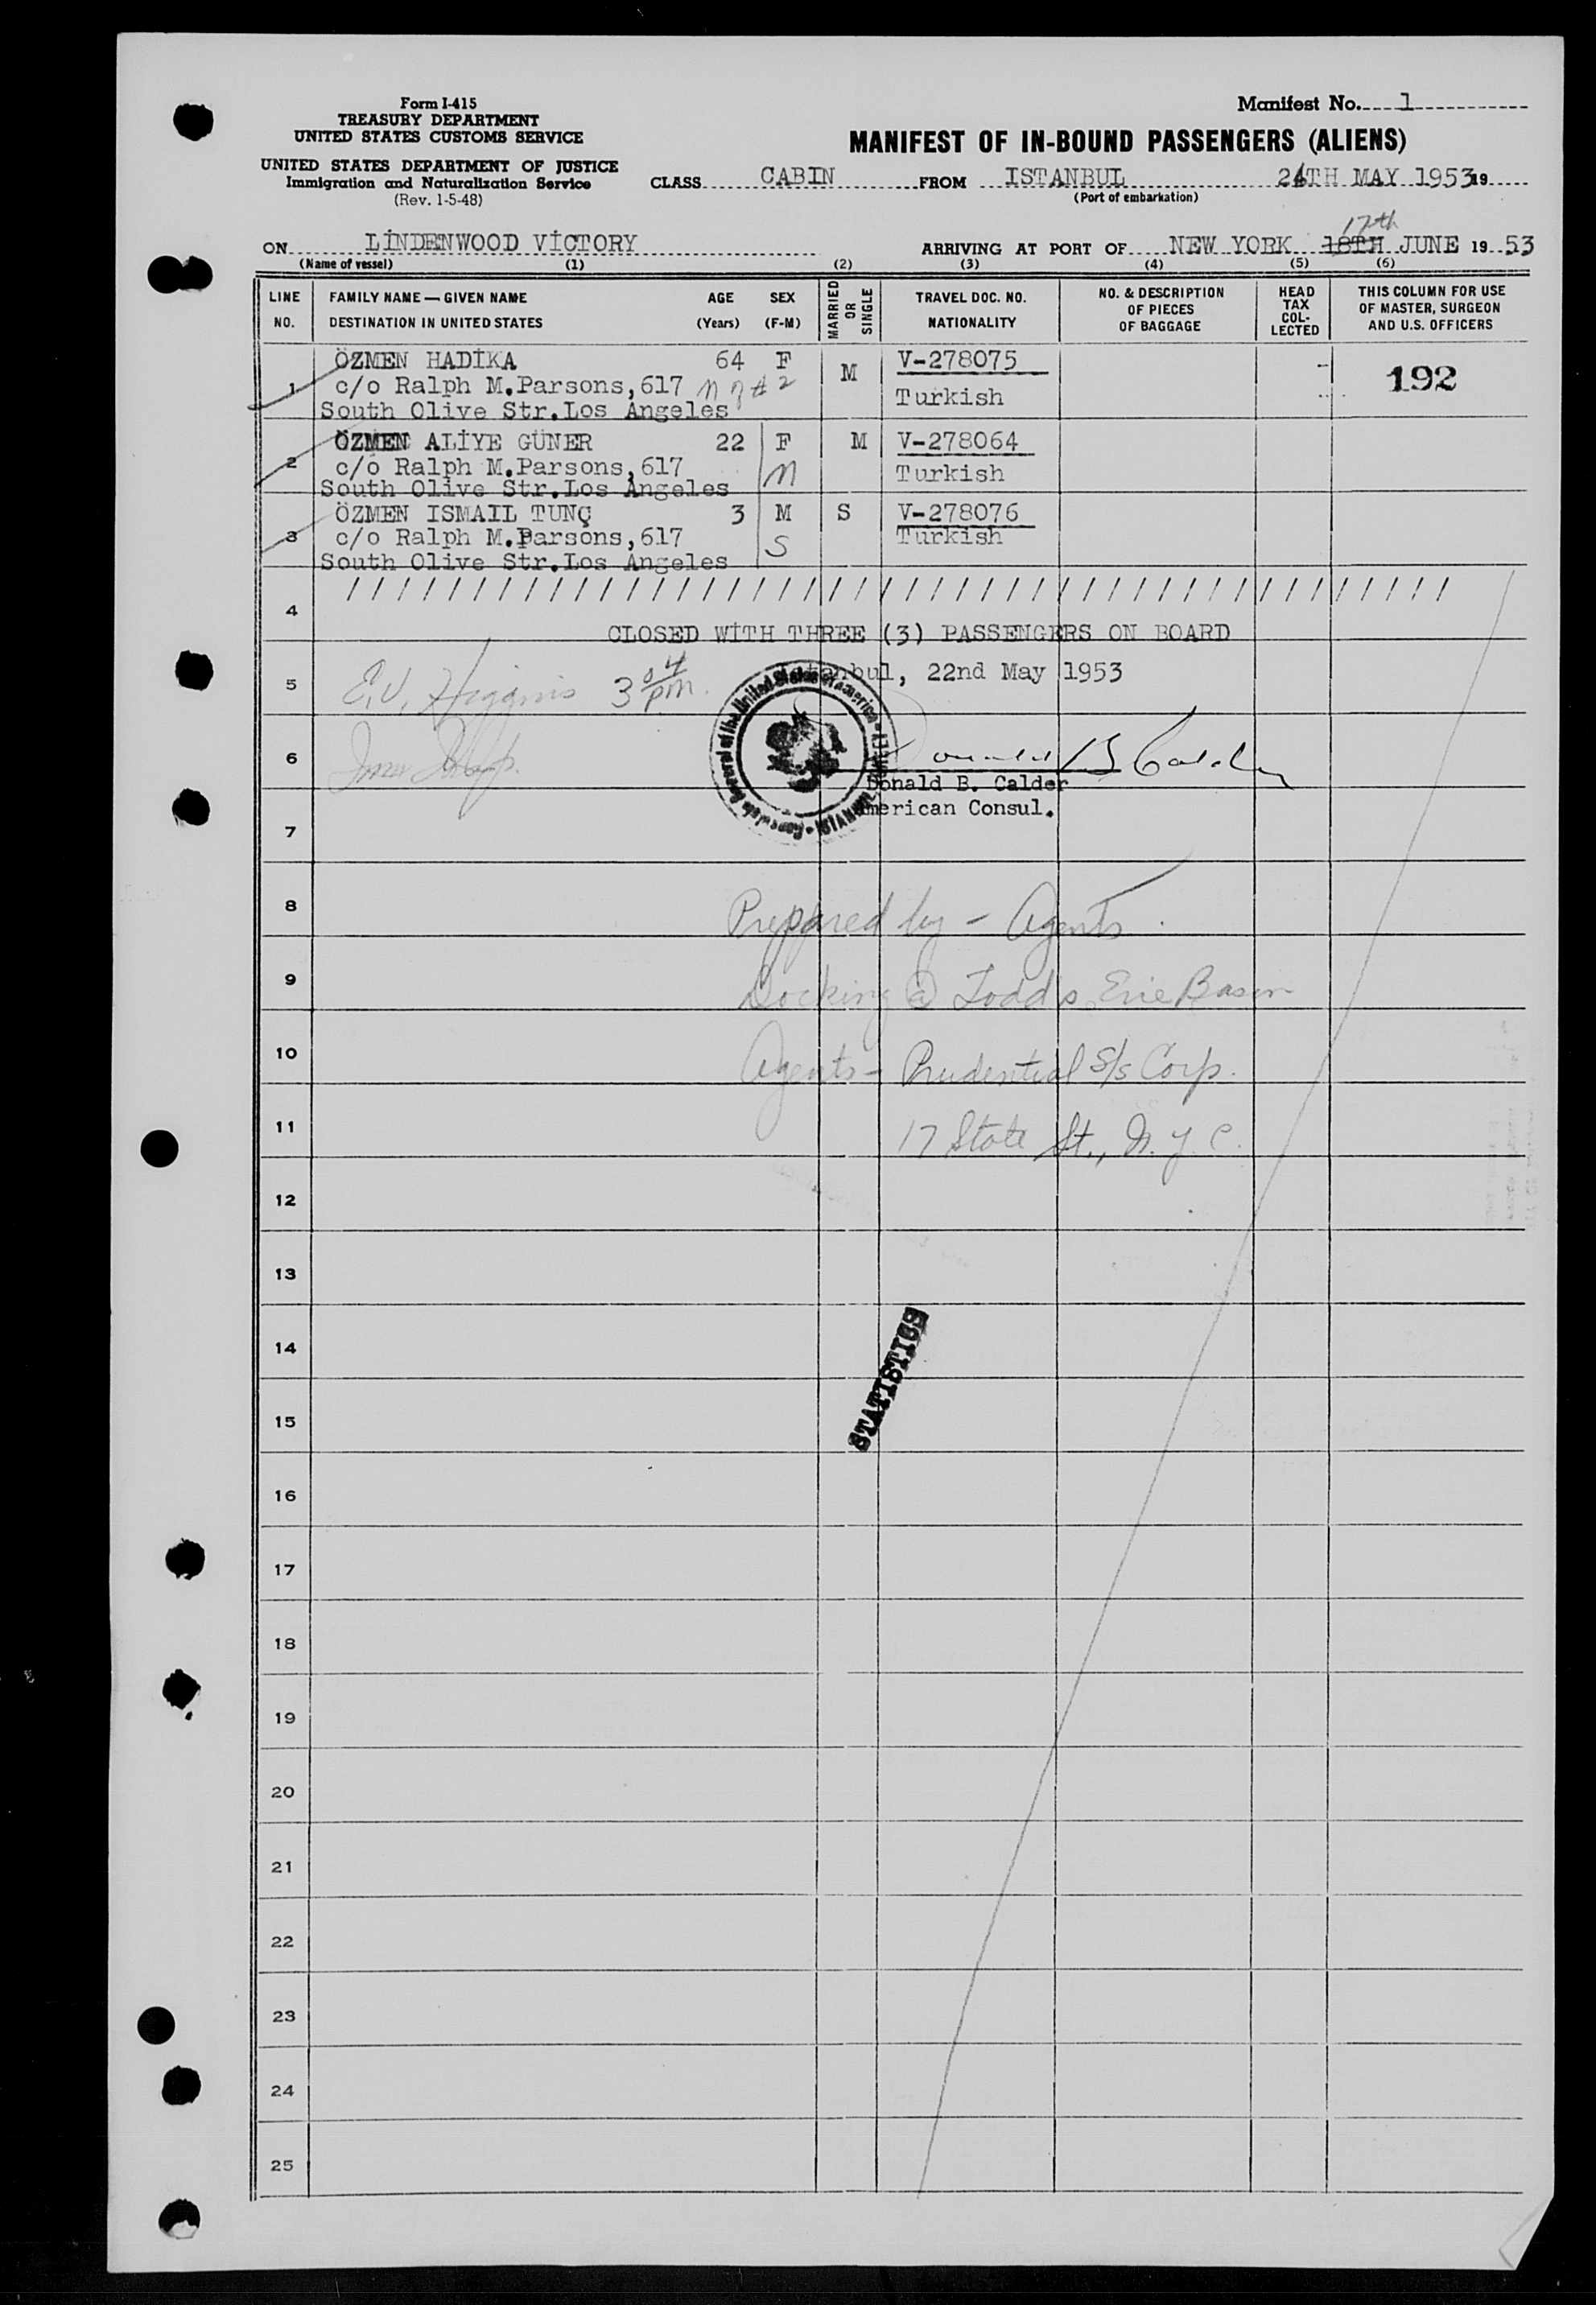 Form I-415
TREASURY DEPARTMENT
UNITED STATES CUSTOMS SERVICE
UNITED STATES DEPARTMENT OF JUSTICE
Immigration and Naturalization Service
(Rev. 1-5-48)
Manifest No. 1
MANIFEST OF IN-BOUND PASSENGERS (ALIENS)
CLASS CABIN FROM ISTANBUL 24TH MAY 1953 19
(Port of embarkation)
17th
ON LİNDENWOOD VİCTORY ARRIVING AT PORT OF NEW YORK 18TH JUNE 19 53
(Name of vessel) (1) (2) (3) (4) (5) (6)
LINE NO.
FAMILY NAME — GIVEN NAME
DESTINATION IN UNITED STATES
AGE (Years)
SEX (F-M)
MARRIED OR SINGLE
TRAVEL DOC. NO.
NATIONALITY
NO. & DESCRIPTION OF PIECES OF BAGGAGE
HEAD TAX COL- LECTED
THIS COLUMN FOR USE OF MASTER, SURGEON AND U.S. OFFICERS
1 ÖZMEN HADİKA 64 F M V-278075 192
c/o Ralph M.Parsons,617 Turkish
South Olive Str.Los Angeles
2 ÖZMEN ALİYE GÜNER 22 F M V-278064
c/o Ralph M.Parsons,617 M Turkish
South Olive Str.Los Angeles
3 ÖZMEN ISMAIL TUNÇ 3 M S V-278076
c/o Ralph M.Parsons,617 S Turkish
South Olive Str.Los Angeles
4
CLOSED WİTH THREE (3) PASSENGERS ON BOARD
5 E.V. Higgins 3 04 pm. Istanbul, 22nd May 1953
6 Donald B Calder
Donald B. Calder
American Consul.
7
8 Prepared by - Agents
9 Docking @ Todds Erie Basin
10 Agents - Prudential S/s Corp.
11 17 State St., N.Y.C.
12
13
14
STATISTICS
15
16
17
18
19
20
21
22
23
24
25